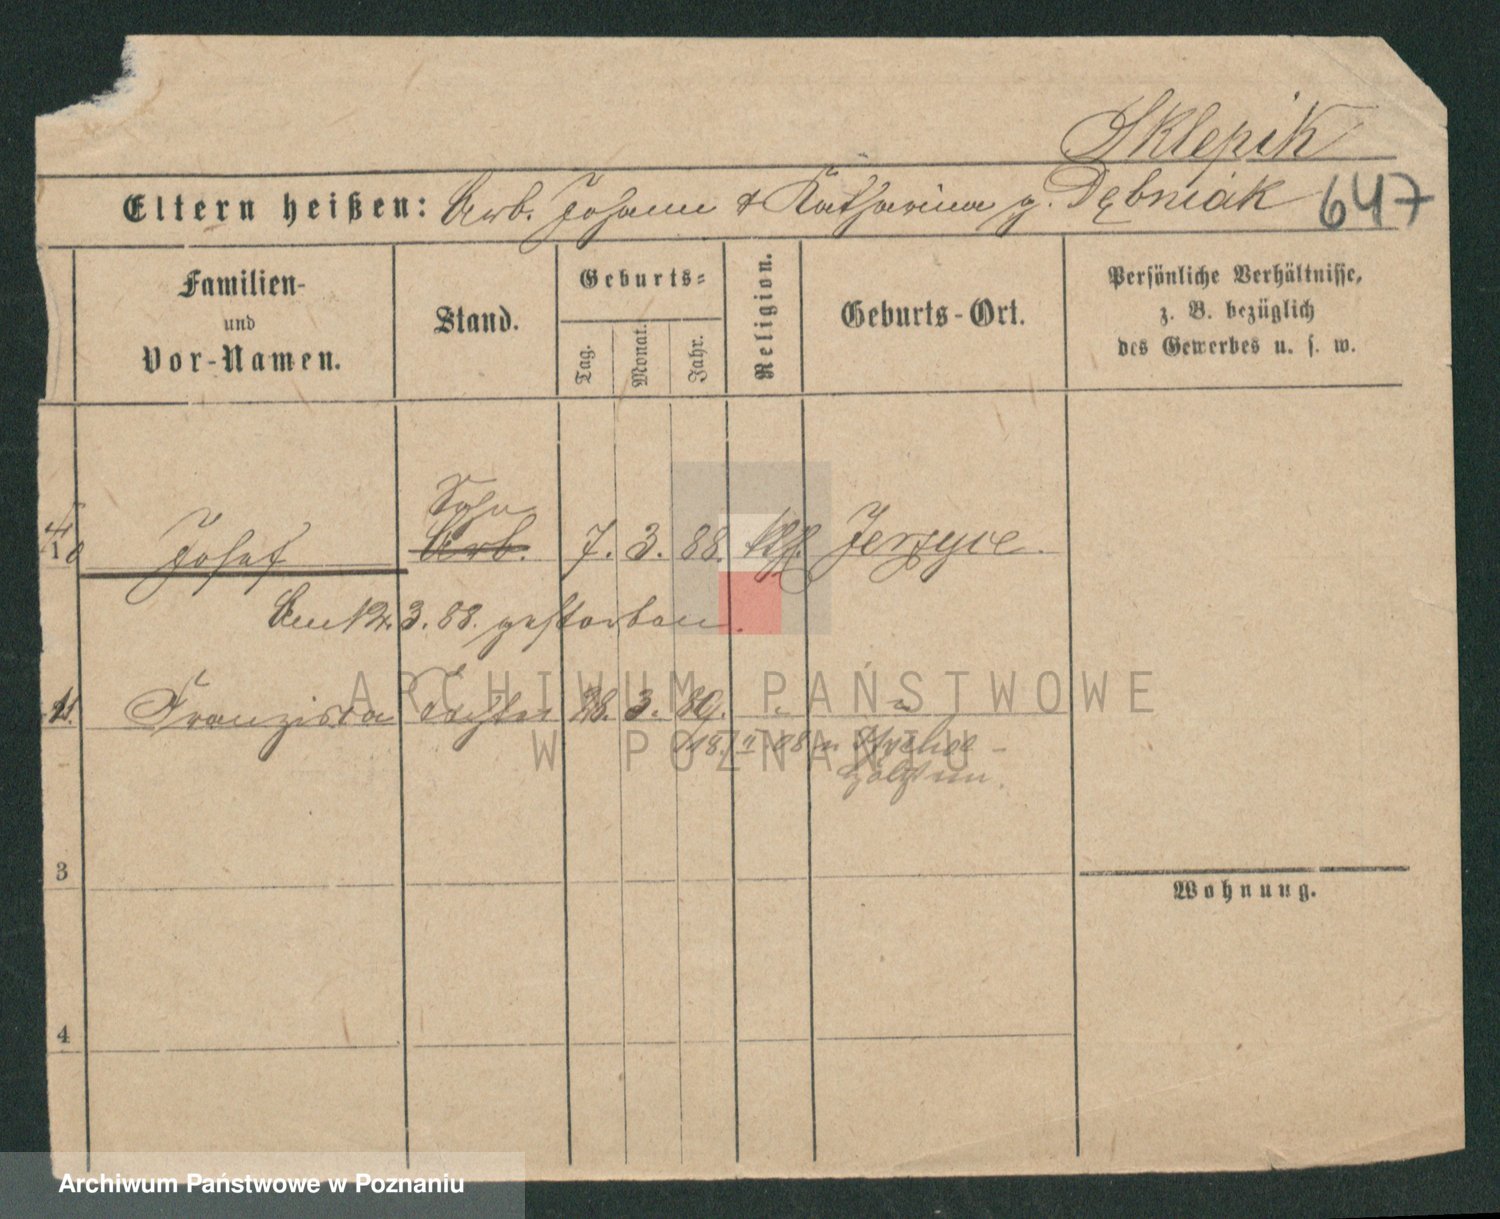 Sklepik
Eltern heißen: Arb. Johann & Katharina g. Dębniak 647
Familien-
und
Vor-Namen.
Stand.
Geburts-
Tag.
Monat.
Jahr.
Religion.
Geburts-Ort.
Persönliche Verhältnisse,
z. B. bezüglich
des Gewerbes u. s. w.
Sohn
1 Josef Arb. 7. 3. 88. kth. Jerzyce.
Am 12. 3. 88. gestorben.
Franziska Tochter 28. 3. 89. " "
18. 08
3
Wohnung.
4
ARCHIWUM PAŃSTWOWE
W POZNANIU
Archiwum Państwowe w Poznaniu